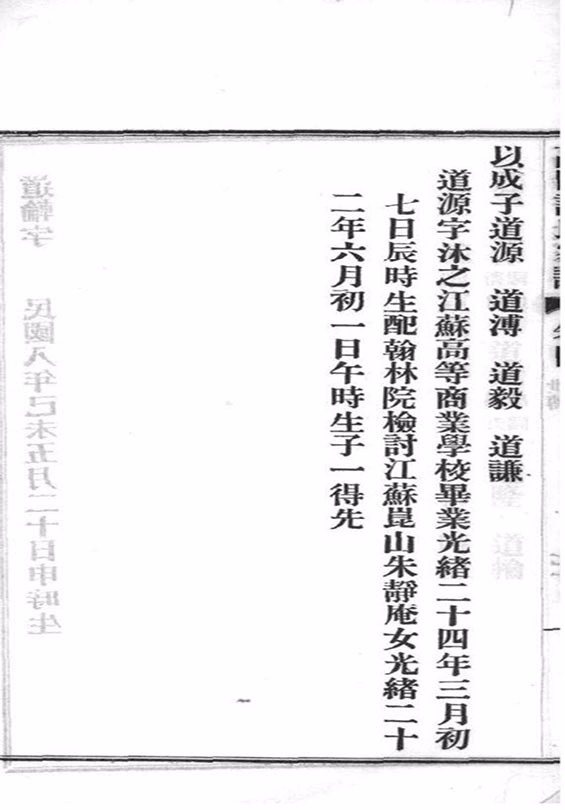 以成子道源　道溥　道毅　道謙
道源字沐之江蘇高等商業學校畢業光緒二十四年三月初
七日辰時生配翰林院檢討江蘇崑山朱靜庵女光緒二十
二年六月初一日午時生子一得先
道輪字　民國八年己未五月二十日申時生